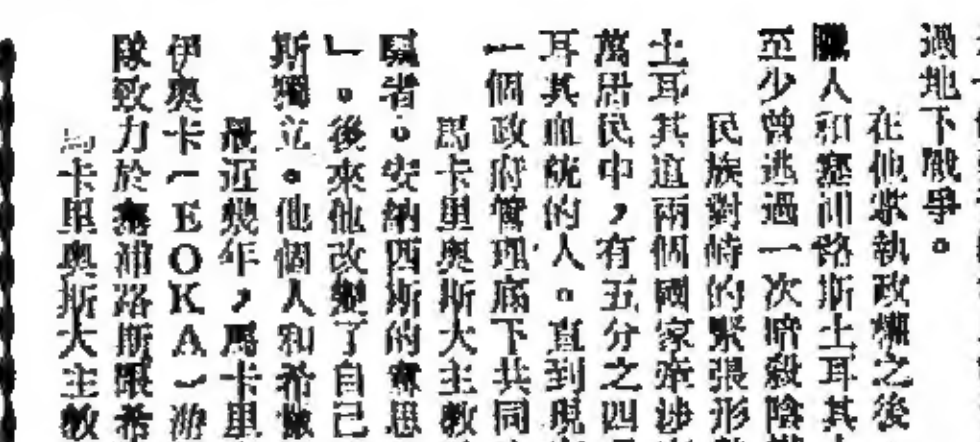 過地下戰爭。
在他掌執政權之後
臘人和塞浦路斯土耳其
至少曾逃過一次暗殺陰
民族對峙的緊張形
土耳其這兩個國家牽涉
萬居民中，有五分之四
耳其血統的人。直到現
一個政府管理底下共同
馬卡里奧斯大主教
者。安納西斯的思
」。後來他改變了自己
斯獨立。他個人和希臘
最近幾年，馬卡里
伊奧卡（EOKA）游
隊致力於塞浦路斯跟希
馬卡里奧斯大主教